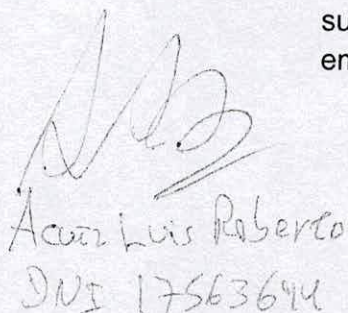 su
en
Luis Roberto
DNI 17563644